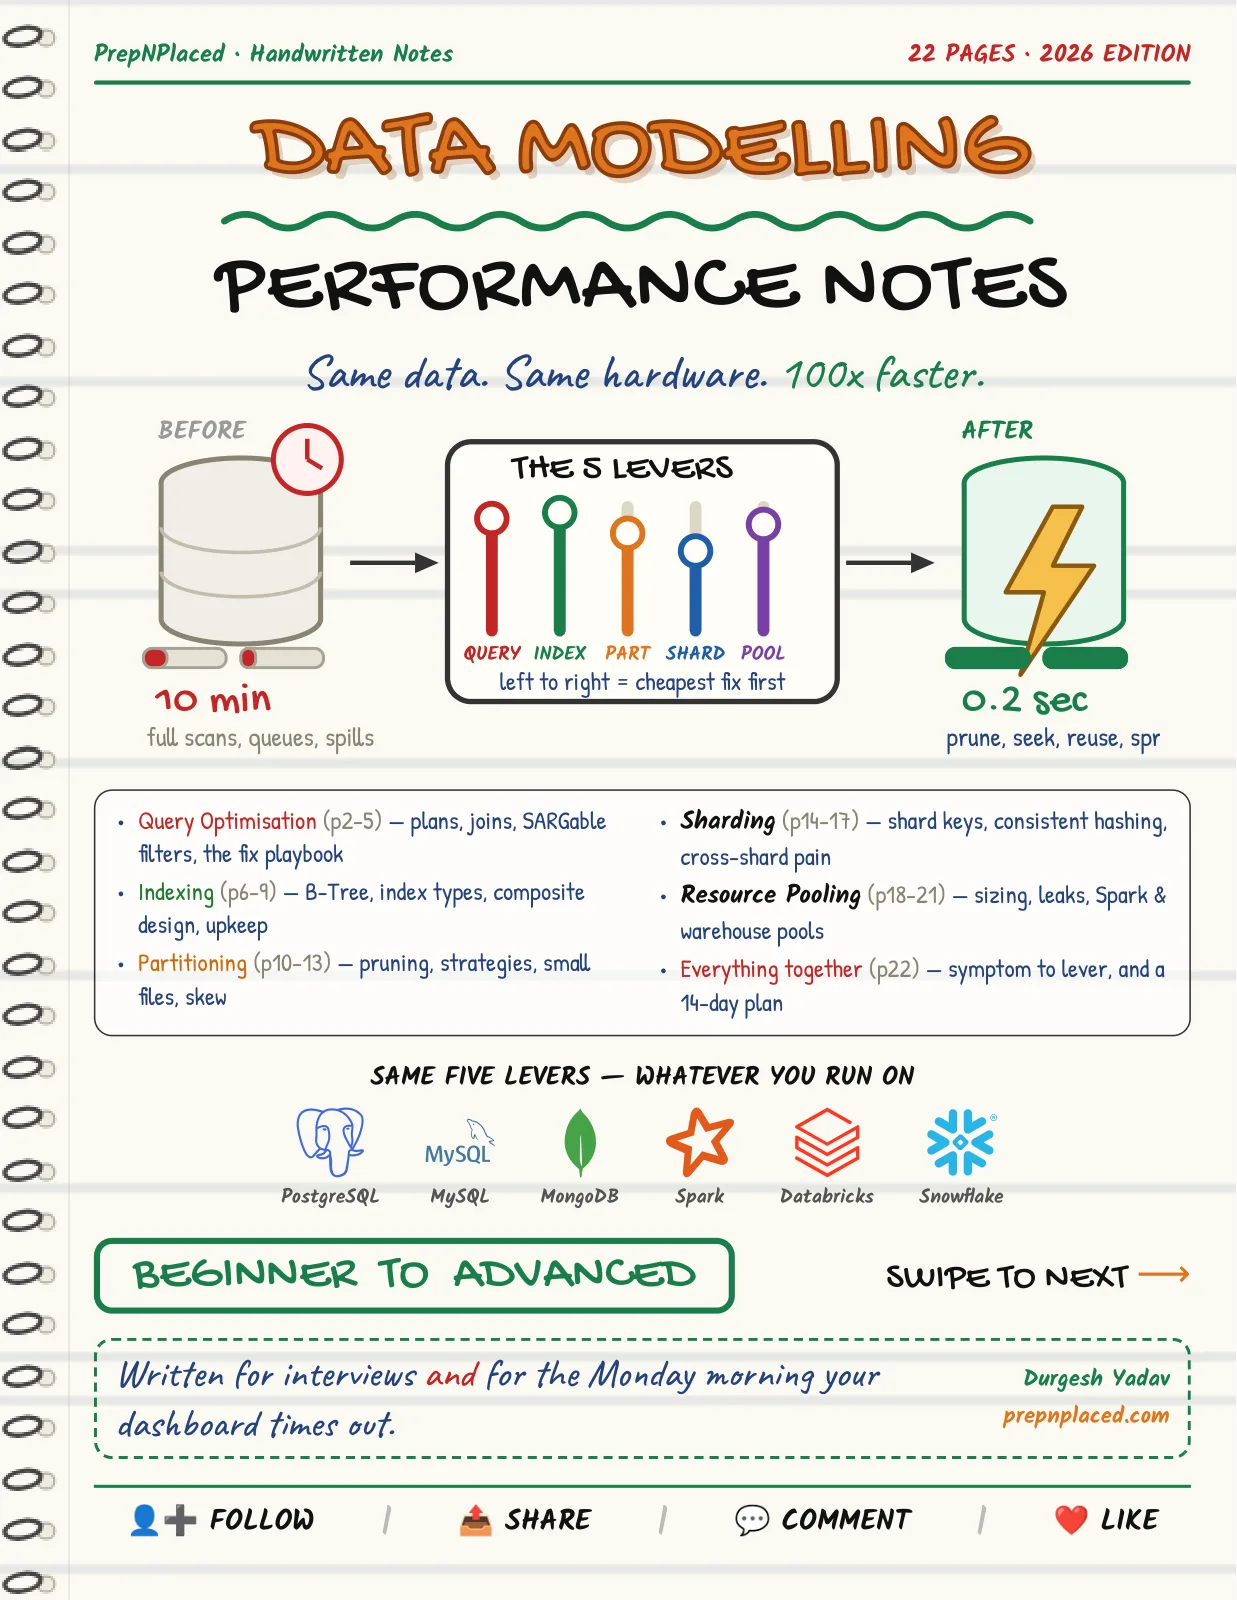 PrepNPlaced · Handwritten Notes
22 PAGES · 2026 EDITION
DATA MODELLING
PERFORMANCE NOTES
Same data. Same hardware. 100x faster.
BEFORE
THE 5 LEVERS
AFTER
QUERY INDEX PART SHARD POOL
left to right = cheapest fix first
10 min
full scans, queues, spills
0.2 sec
prune, seek, reuse, spr
• Query Optimisation (p2-5) — plans, joins, SARGable
filters, the fix playbook
• Indexing (p6-9) — B-Tree, index types, composite
design, upkeep
• Partitioning (p10-13) — pruning, strategies, small
files, skew
• Sharding (p14-17) — shard keys, consistent hashing,
cross-shard pain
• Resource Pooling (p18-21) — sizing, leaks, Spark &
warehouse pools
• Everything together (p22) — symptom to lever, and a
14-day plan
SAME FIVE LEVERS — WHATEVER YOU RUN ON
MySQL
®
PostgreSQL MySQL MongoDB Spark Databricks Snowflake
BEGINNER TO ADVANCED
SWIPE TO NEXT →
Written for interviews and for the Monday morning your
dashboard times out.
Durgesh Yadav
prepnplaced.com
FOLLOW / SHARE / COMMENT / LIKE